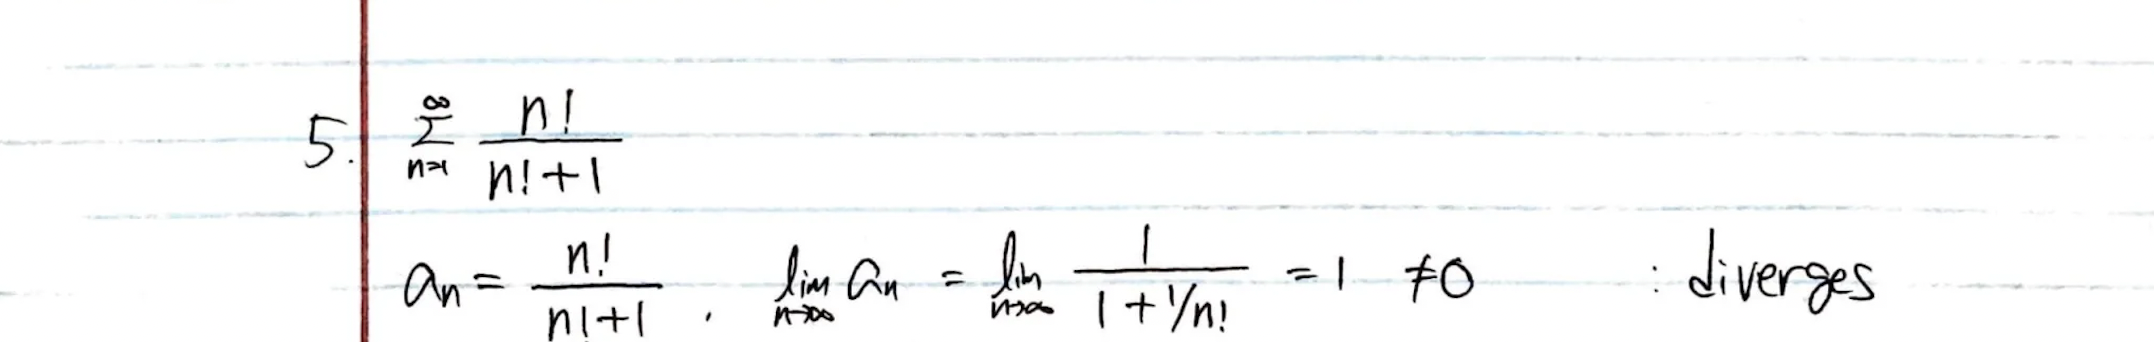 5. ∑_{n=1}^{∞} n!/(n!+1)
a_n = n!/(n!+1) , lim_{n→∞} a_n = lim_{n→∞} 1/(1+1/n!) = 1 ≠0 : diverges